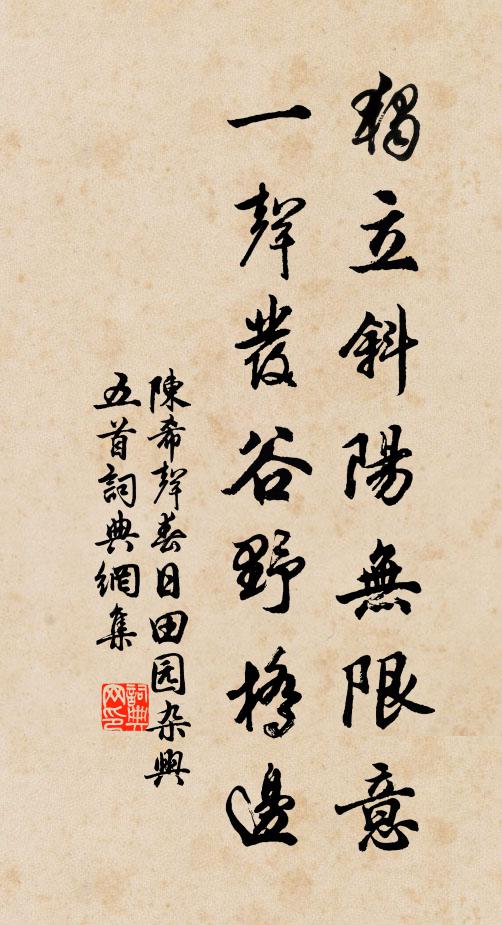 獨立斜陽無限意
一聲發谷野橋邊
陳希聲春日田园杂興
五首詞典網集
詞典网印